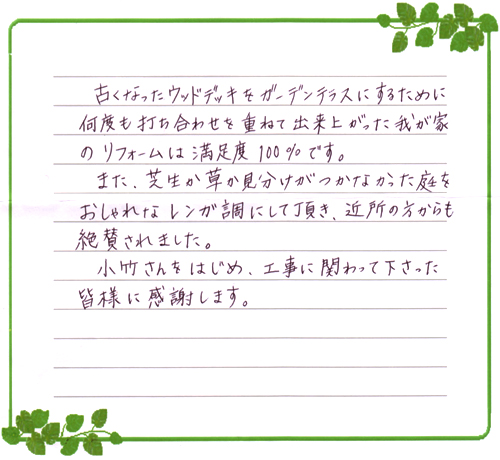 古くなったウッドデッキをガーデンテラスにするために
何度も打ち合わせを重ねて出来上がった我が家
のリフォームは満足度100%です。
また、芝生か草か見分けがつかなかった庭を
おしゃれなレンガ調にして頂き、近所の方からも
絶賛されました。
小竹さんをはじめ、工事に関わって下さった
皆様に感謝します。